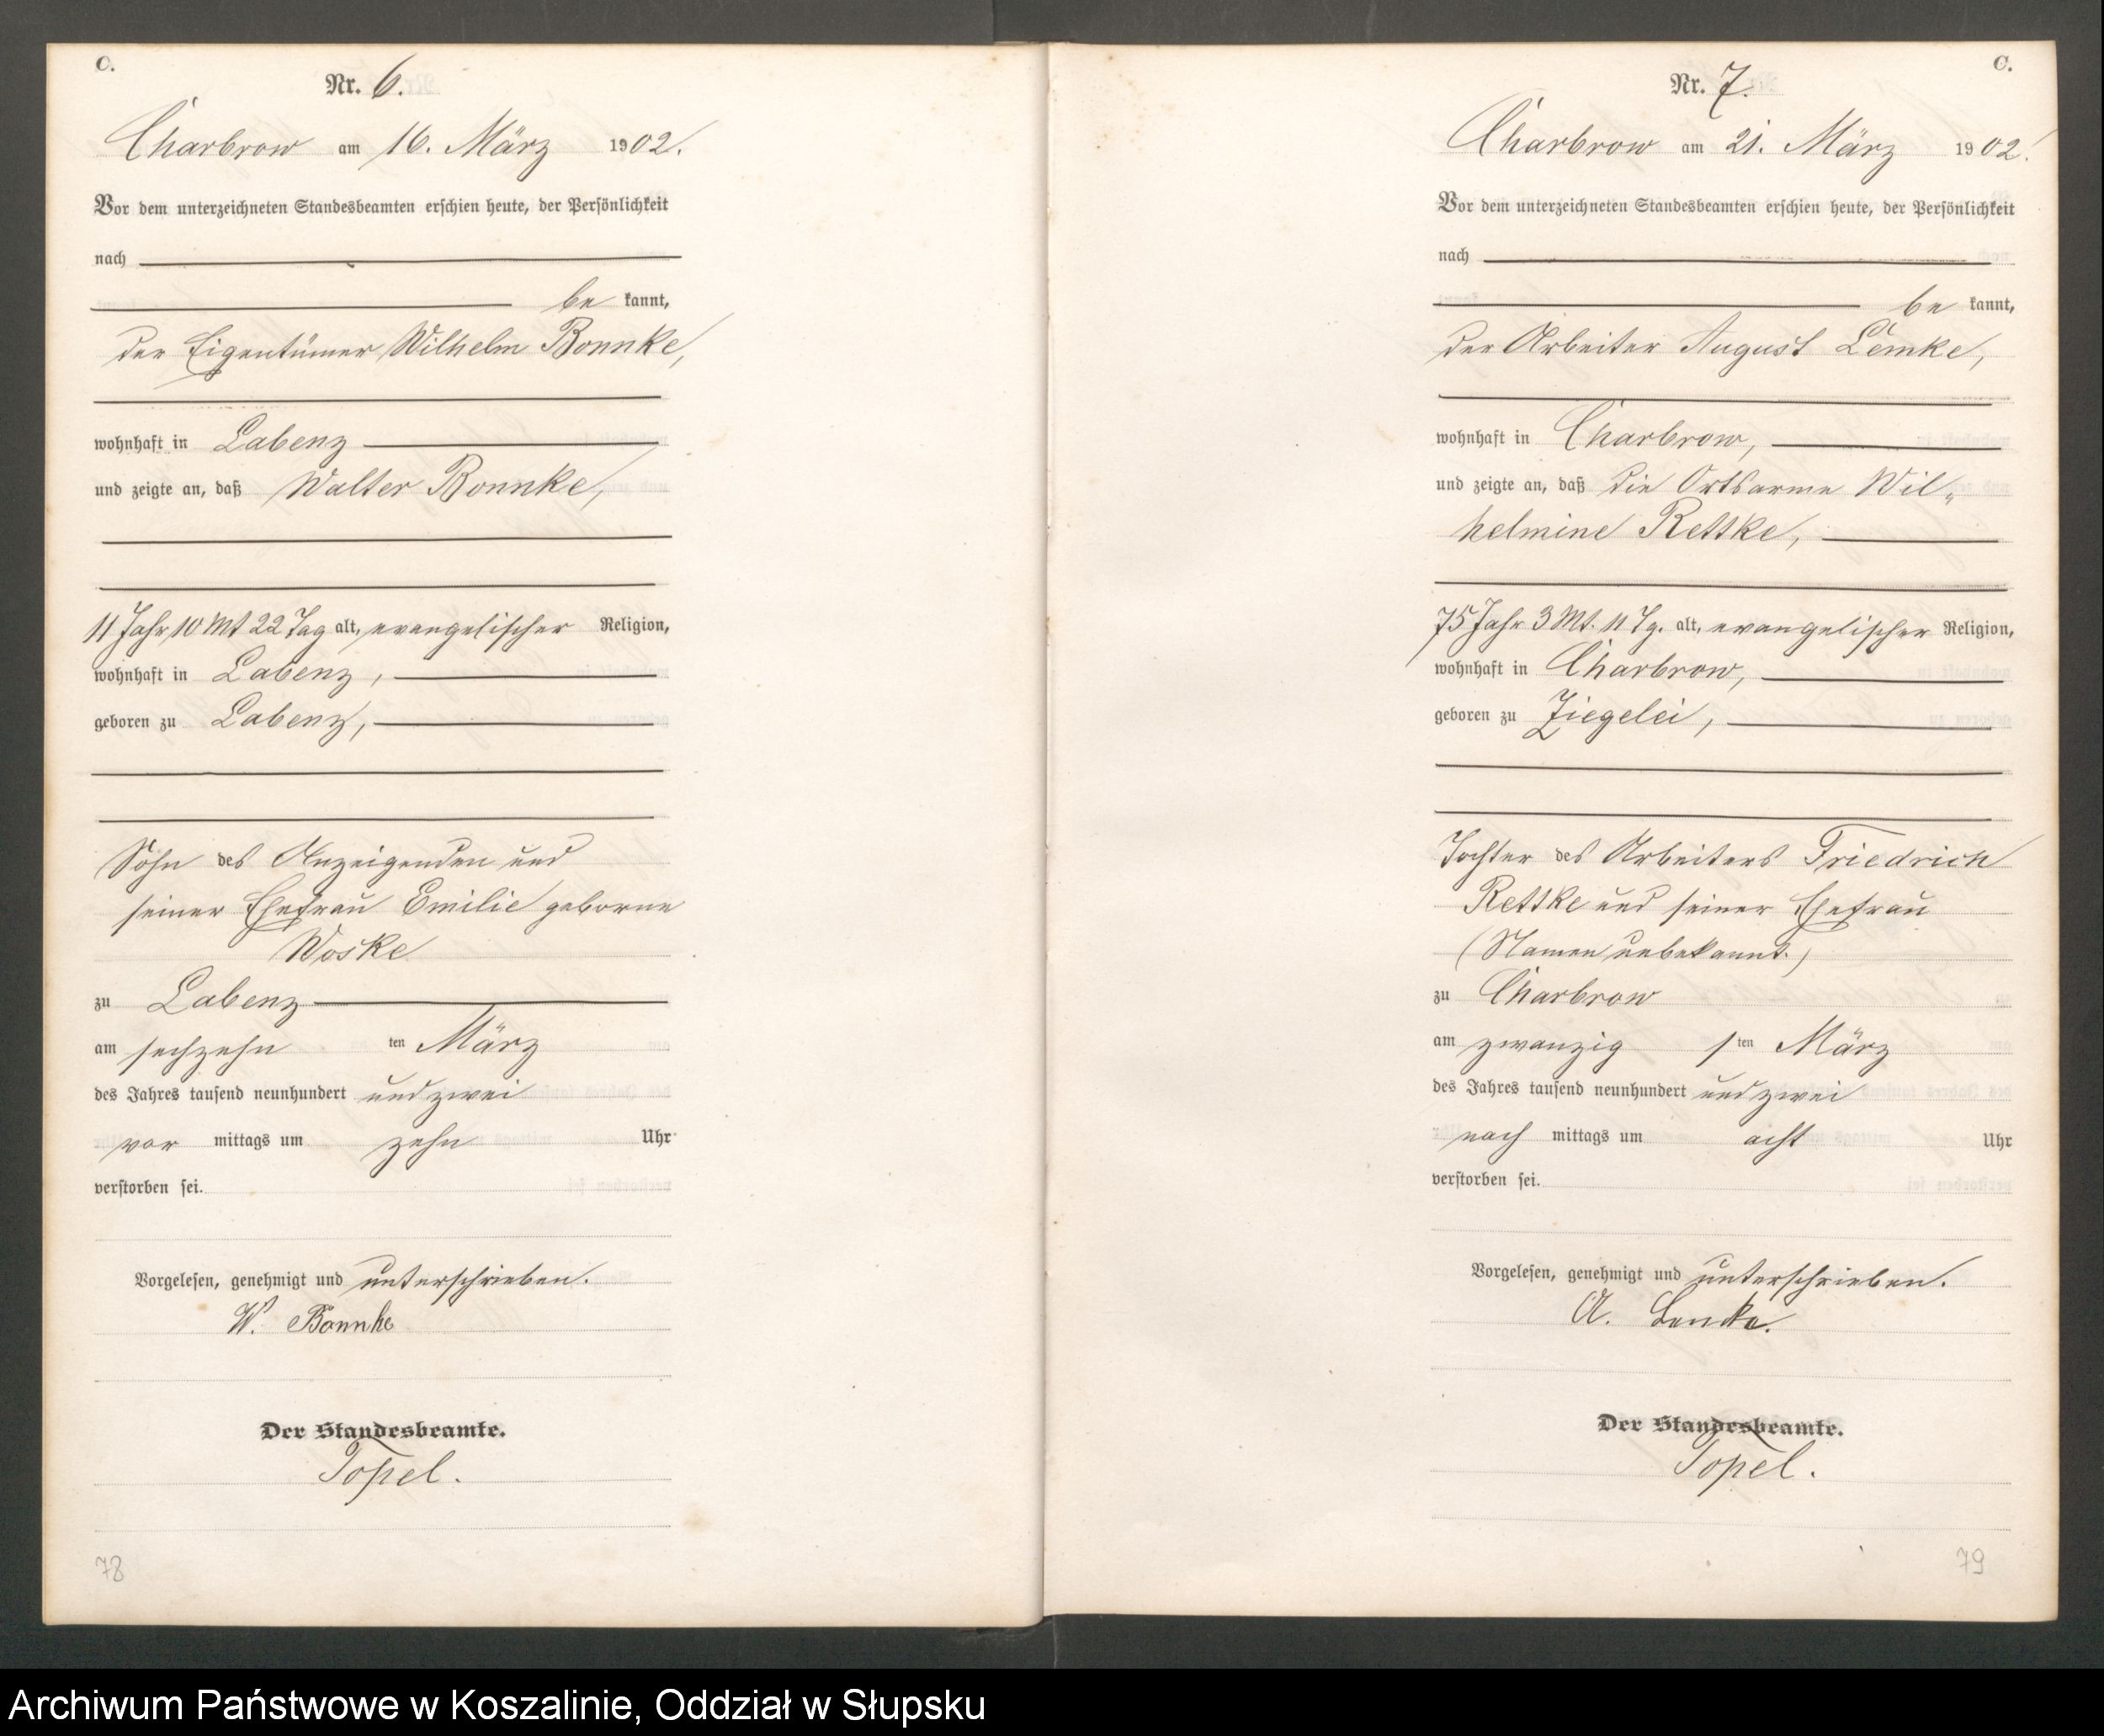 C.
Nr. 6.
Charbrow am 16. März 1902.
Vor dem unterzeichneten Standesbeamten erschien heute, der Persönlichkeit
nach
be kannt,
der Eigentümer Wilhelm Bonnke,
wohnhaft in Labenz
und zeigte an, daß Walter Bonnke,
11 Jahr, 10 Mt 22 Tag alt, evangelischer Religion,
wohnhaft in Labenz,
geboren zu Labenz,
Sohn des Anzeigenden und
seiner Ehefrau Emilie geborne
Woske
zu Labenz
am sechzehn ten März
des Jahres tausend neunhundert und zwei
vor mittags um zehn Uhr
verstorben sei.
Vorgelesen, genehmigt und unterschrieben.
W. Bonnke
Der Standesbeamte.
Topel.
78
C.
Nr. 7.
Charbrow am 21. März 1902.
Vor dem unterzeichneten Standesbeamten erschien heute, der Persönlichkeit
nach
be kannt,
der Arbeiter August Lemke,
wohnhaft in Charbrow,
und zeigte an, daß die Ortsarme Wil-
helmine Rettke,
75 Jahr 3 Mt. 11 Tg. alt, evangelischer Religion,
wohnhaft in Charbrow,
geboren zu Ziegelei,
Tochter des Arbeiters Friedrich
Rettke und seiner Ehefrau
(Namen unbekannt.)
zu Charbrow
am zwanzig sten März
des Jahres tausend neunhundert und zwei
nach mittags um acht Uhr
verstorben sei.
Vorgelesen, genehmigt und unterschrieben.
A. Lemke.
Der Standesbeamte.
Topel.
79
Archiwum Państwowe w Koszalinie, Oddział w Słupsku